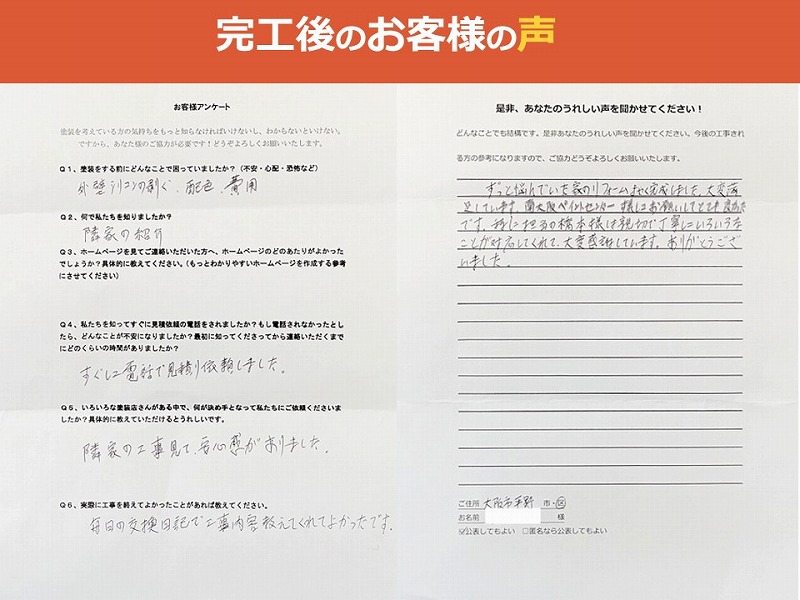 完工後のお客様の声
お客様アンケート
塗装を考えている方の気持ちをもっと知らなければいけないし、わからないといけない。
ですから、あなた様のご協力が必要です！どうぞよろしくお願いいたします。
Q１、塗装をする前にどんなことで困っていましたか？（不安・心配・恐怖など）
外壁シリコンの剥ぐ、配色、費用
Q２、何で私たちを知りましたか？
隣家の紹介
Q３、ホームページを見てご連絡いただいた方へ、ホームページのどのあたりがよかった
でしょうか？具体的に教えてください。（もっとわかりやすいホームページを作成する参考
にさせてください）
Q４、私たちを知ってすぐに見積依頼の電話をされましたか？もし電話されなかったとし
たら、どんなことが不安になりましたか？最初に知ってくださってから連絡いただくまで
にどのくらいの時間がありましたか？
すぐに電話で見積り依頼しました。
Q５、いろいろな塗装店さんがある中で、何が決め手となって私たちにご依頼くださいま
したか？具体的に教えていただけるとうれしいです。
隣家の工事見て、安心感がありました。
Q６、実際に工事を終えてよかったことがあれば教えてください。
毎日の交換日記で工事内容教えてくれてよかったです。
是非、あなたのうれしい声を聞かせてください！
どんなことでも結構です。是非あなたのうれしい声を聞かせてください。今後の工事され
る方の参考になりますので、ご協力どうぞよろしくお願いいたします。
ずっと悩んでいた家のリフォームやく完成しました。大変満
足しています。南大阪ペイントセンター様にお願いしてとても良かった
です。特に担当の橋本様は親切で丁寧にいろいろな
ことが対応してくれて、大変感謝しています。ありがとうござ
いました。
ご住所 大阪市平野 市・区
お名前 様
☑公表してもよい □匿名なら公表してもよい